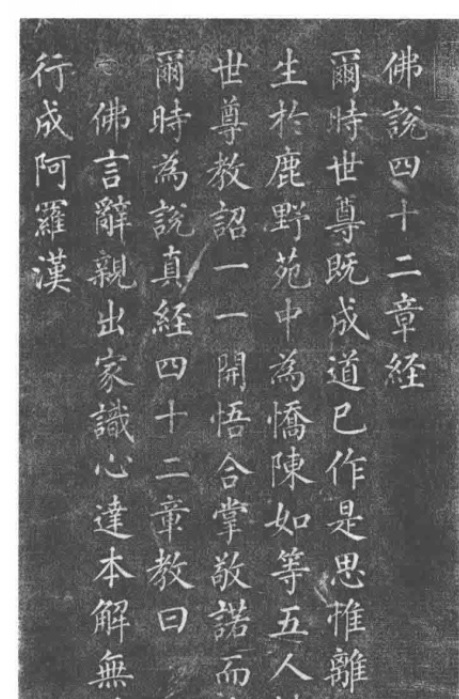 佛說四十二章経
爾時世尊既成道已作是思惟離
生於鹿野苑中為憍陳如等五人
世尊教詔一一開悟合掌敬諾而
爾時為說真経四十二章教曰
佛言辭親出家識心達本解無
行成阿羅漢